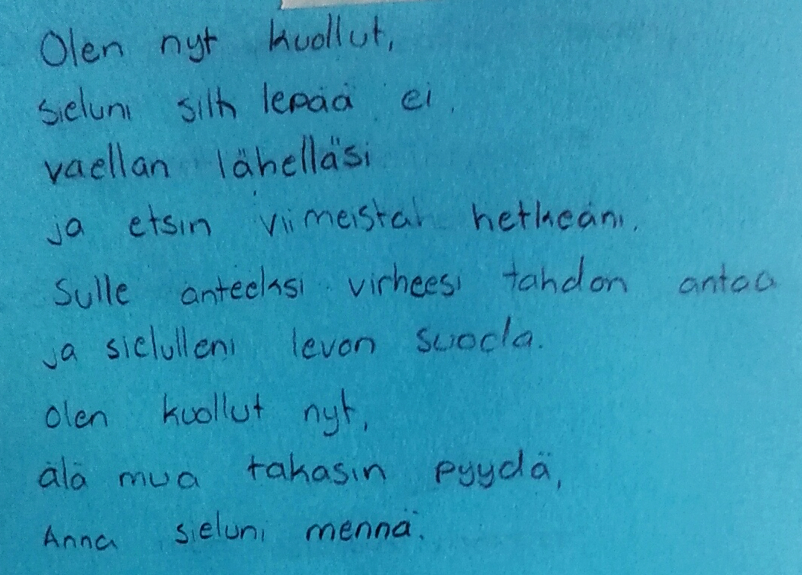 Olen nyt kuollut,
sieluni silti lepää ei.
vaellan lähelläsi
ja etsin viimeistä hetkeäni.
Sulle anteeksi virheesi tahdon antaa
ja sielulleni levon suoda.
olen kuollut nyt,
älä mua takasin pyydä,
Anna sieluni mennä.